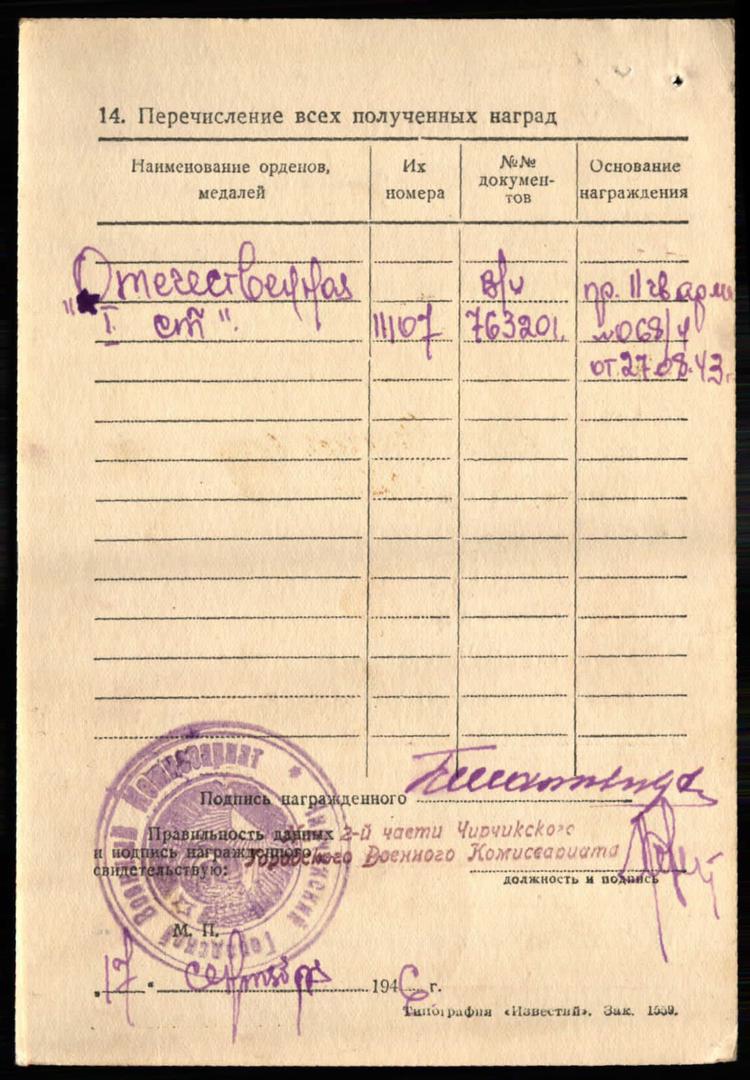 14. Перечисление всех полученных наград
Наименование орденов, медалей
Их номера
№№ докумен-тов
Основание награждения
Отечественная
в/ч
пр. 11 гв арм
"I ст".
111107
763201.
№068/н
от 27.08.43 г.
Подпись награжденного
Правильность данных
2-й части Чирчикского
и подпись награжденного
Городского Военного Комиссариата
свидетельствую:
должность и подпись
Чирчикский Городской Военный Комиссариат
М. П.
„17“ сентября 1946 г.
Типография «Известий». Зак. 1559.